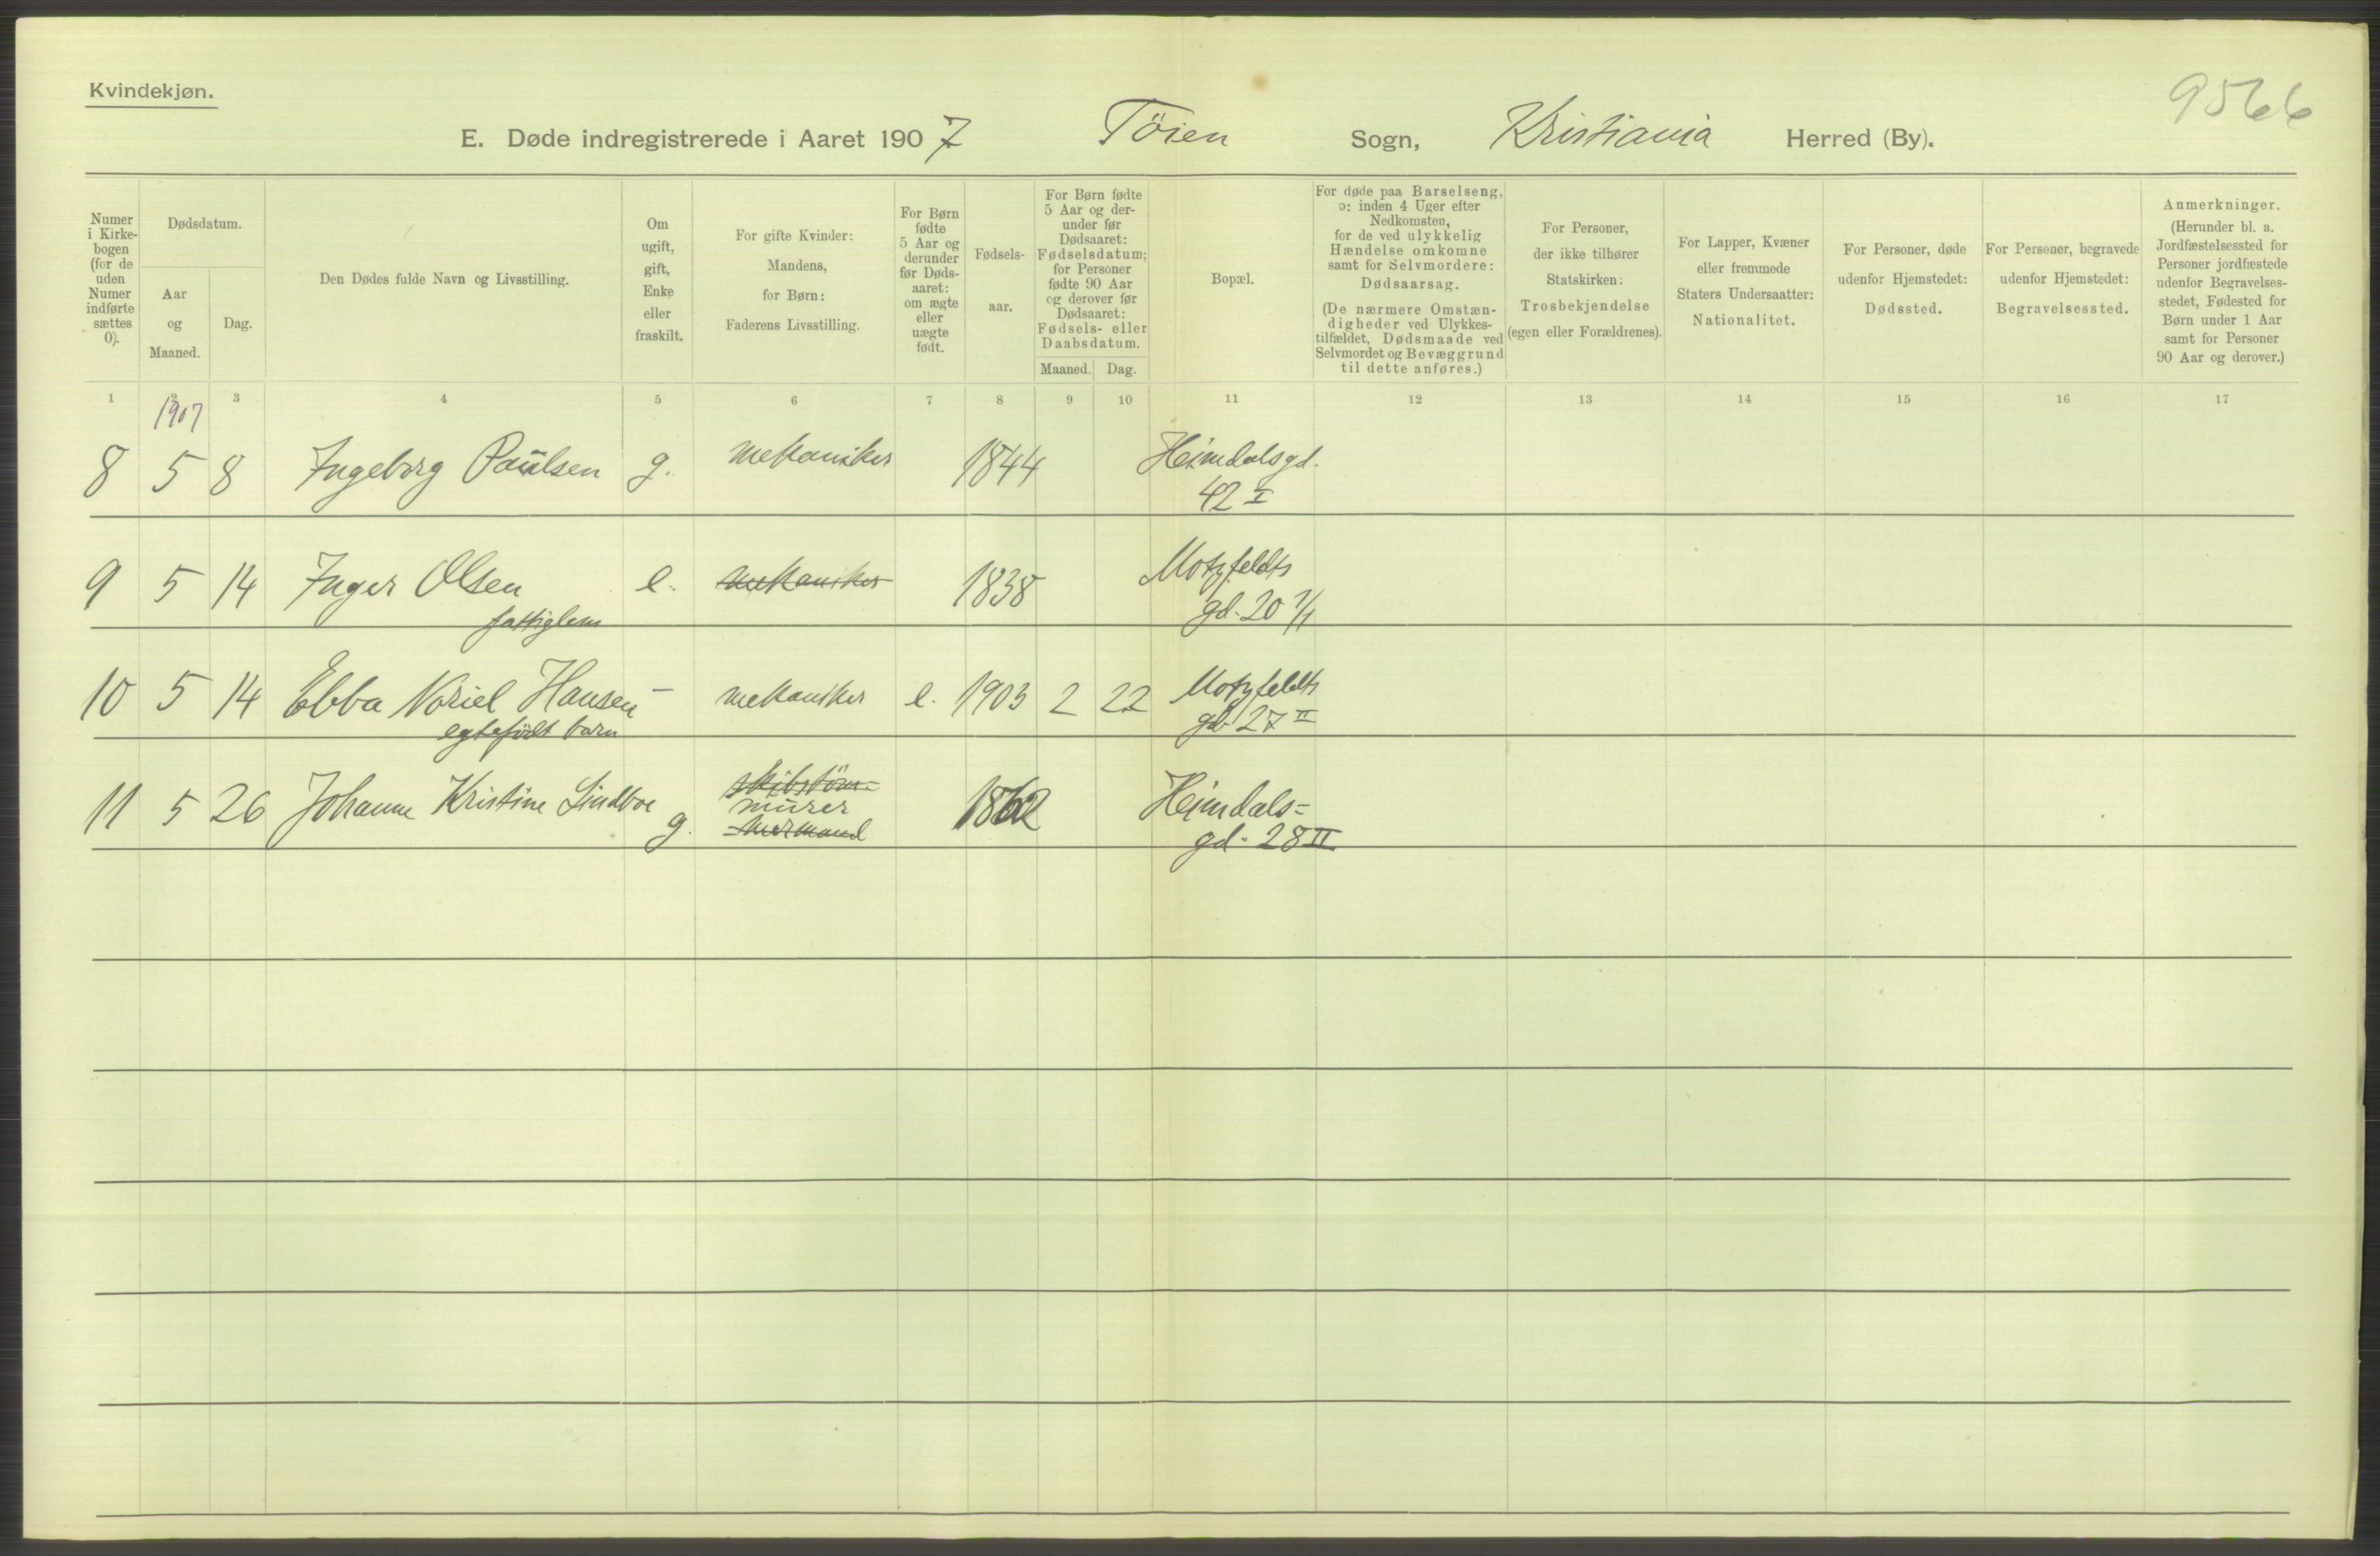 Kvindekjøn.
9566
E. Døde indregistrerede i Aaret 1907 Töien Sogn, Kristiania Herred (By).
Numer i Kirke-bogen (for de uden Numer indførte sættes 0).
Dødsdatum.
Aar og Maaned.
Dag.
Den Dødes fulde Navn og Livsstilling.
Om ugift, gift, Enke eller fraskilt.
For gifte Kvinder: Mandens, for Børn: Faderens Livsstilling.
For Børn fødte 5 Aar og derunder før Døds-aaret: om ægte eller uægte født.
Fødsels-aar.
For Børn fødte 5 Aar og der-under før Dødsaaret: Fødselsdatum; for Personer fødte 90 Aar og derover før Dødsaaret: Fødsels- eller Daabsdatum.
Maaned. Dag.
Bopæl.
For døde paa Barselseng, ɔ: inden 4 Uger efter Nedkomsten, for de ved ulykkelig Hændelse omkomne samt for Selvmordere: Dødsaarsag.
(De nærmere Omstæn-digheder ved Ulykkes-tilfældet, Dødsmaade ved Selvmordet og Bevæggrund til dette anføres.)
For Personer, der ikke tilhører Statskirken: Trosbekjendelse (egen eller Forældrenes).
For Lapper, Kvæner eller fremmede Staters Undersaatter: Nationalitet.
For Personer, døde udenfor Hjemstedet: Dødssted.
For Personer, begravede udenfor Hjemstedet: Begravelsessted.
Anmerkninger. (Herunder bl. a. Jordfæstelsessted for Personer jordfæstede udenfor Begravelses-stedet, Fødested for Børn under 1 Aar samt for Personer 90 Aar og derover.)
1 2 3 4 5 6 7 8 9 10 11 12 13 14 15 16 17
1907
8 5 8 Ingeborg Paulsen g. mekaniker 1844 Heimdalsgd.
42 I
9 5 14 Inger Olsen e. mekaniker 1838 Motzfeldts
fattiglem gd. 20 1/1
10 5 14 Ebba Noriel Hansen – mekaniker e. 1903 2 22 Motzfeldts
egtefödt barn gd 27 II
skibstöm-
11 5 26 Johanne Kristine Lindboe g. murer 1862 Heimdals=
mermand gd. 28 II